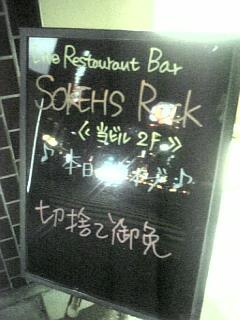 Live Restaurant Bar
SOKEHS Rock
《 当ビル 2F 》
♪ 本日 ♪
切捨て御免